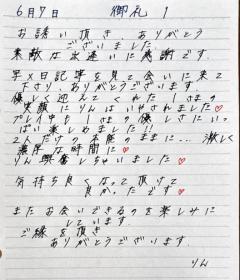 6月7日 御礼 1
お誘い頂き、ありがとう
ございました
素敵な出逢いに感謝です
写メ日記等を見て会いに来て
下さり、ありがとうございます
優しく迎えてくれた Iさまの
笑顔にりんはいやされました♡
プレイ中も Iさまの優しさにいっ
ぱい楽しめました!!
2人だけの本能のままに… 激しく
濃厚な時間に♡
りん興奮しちゃいました♡
気持ち良くなって頂けて
良かったです♡
またお会いできるのを楽しみに
しています
ご縁を頂き
ありがとうございます
りん